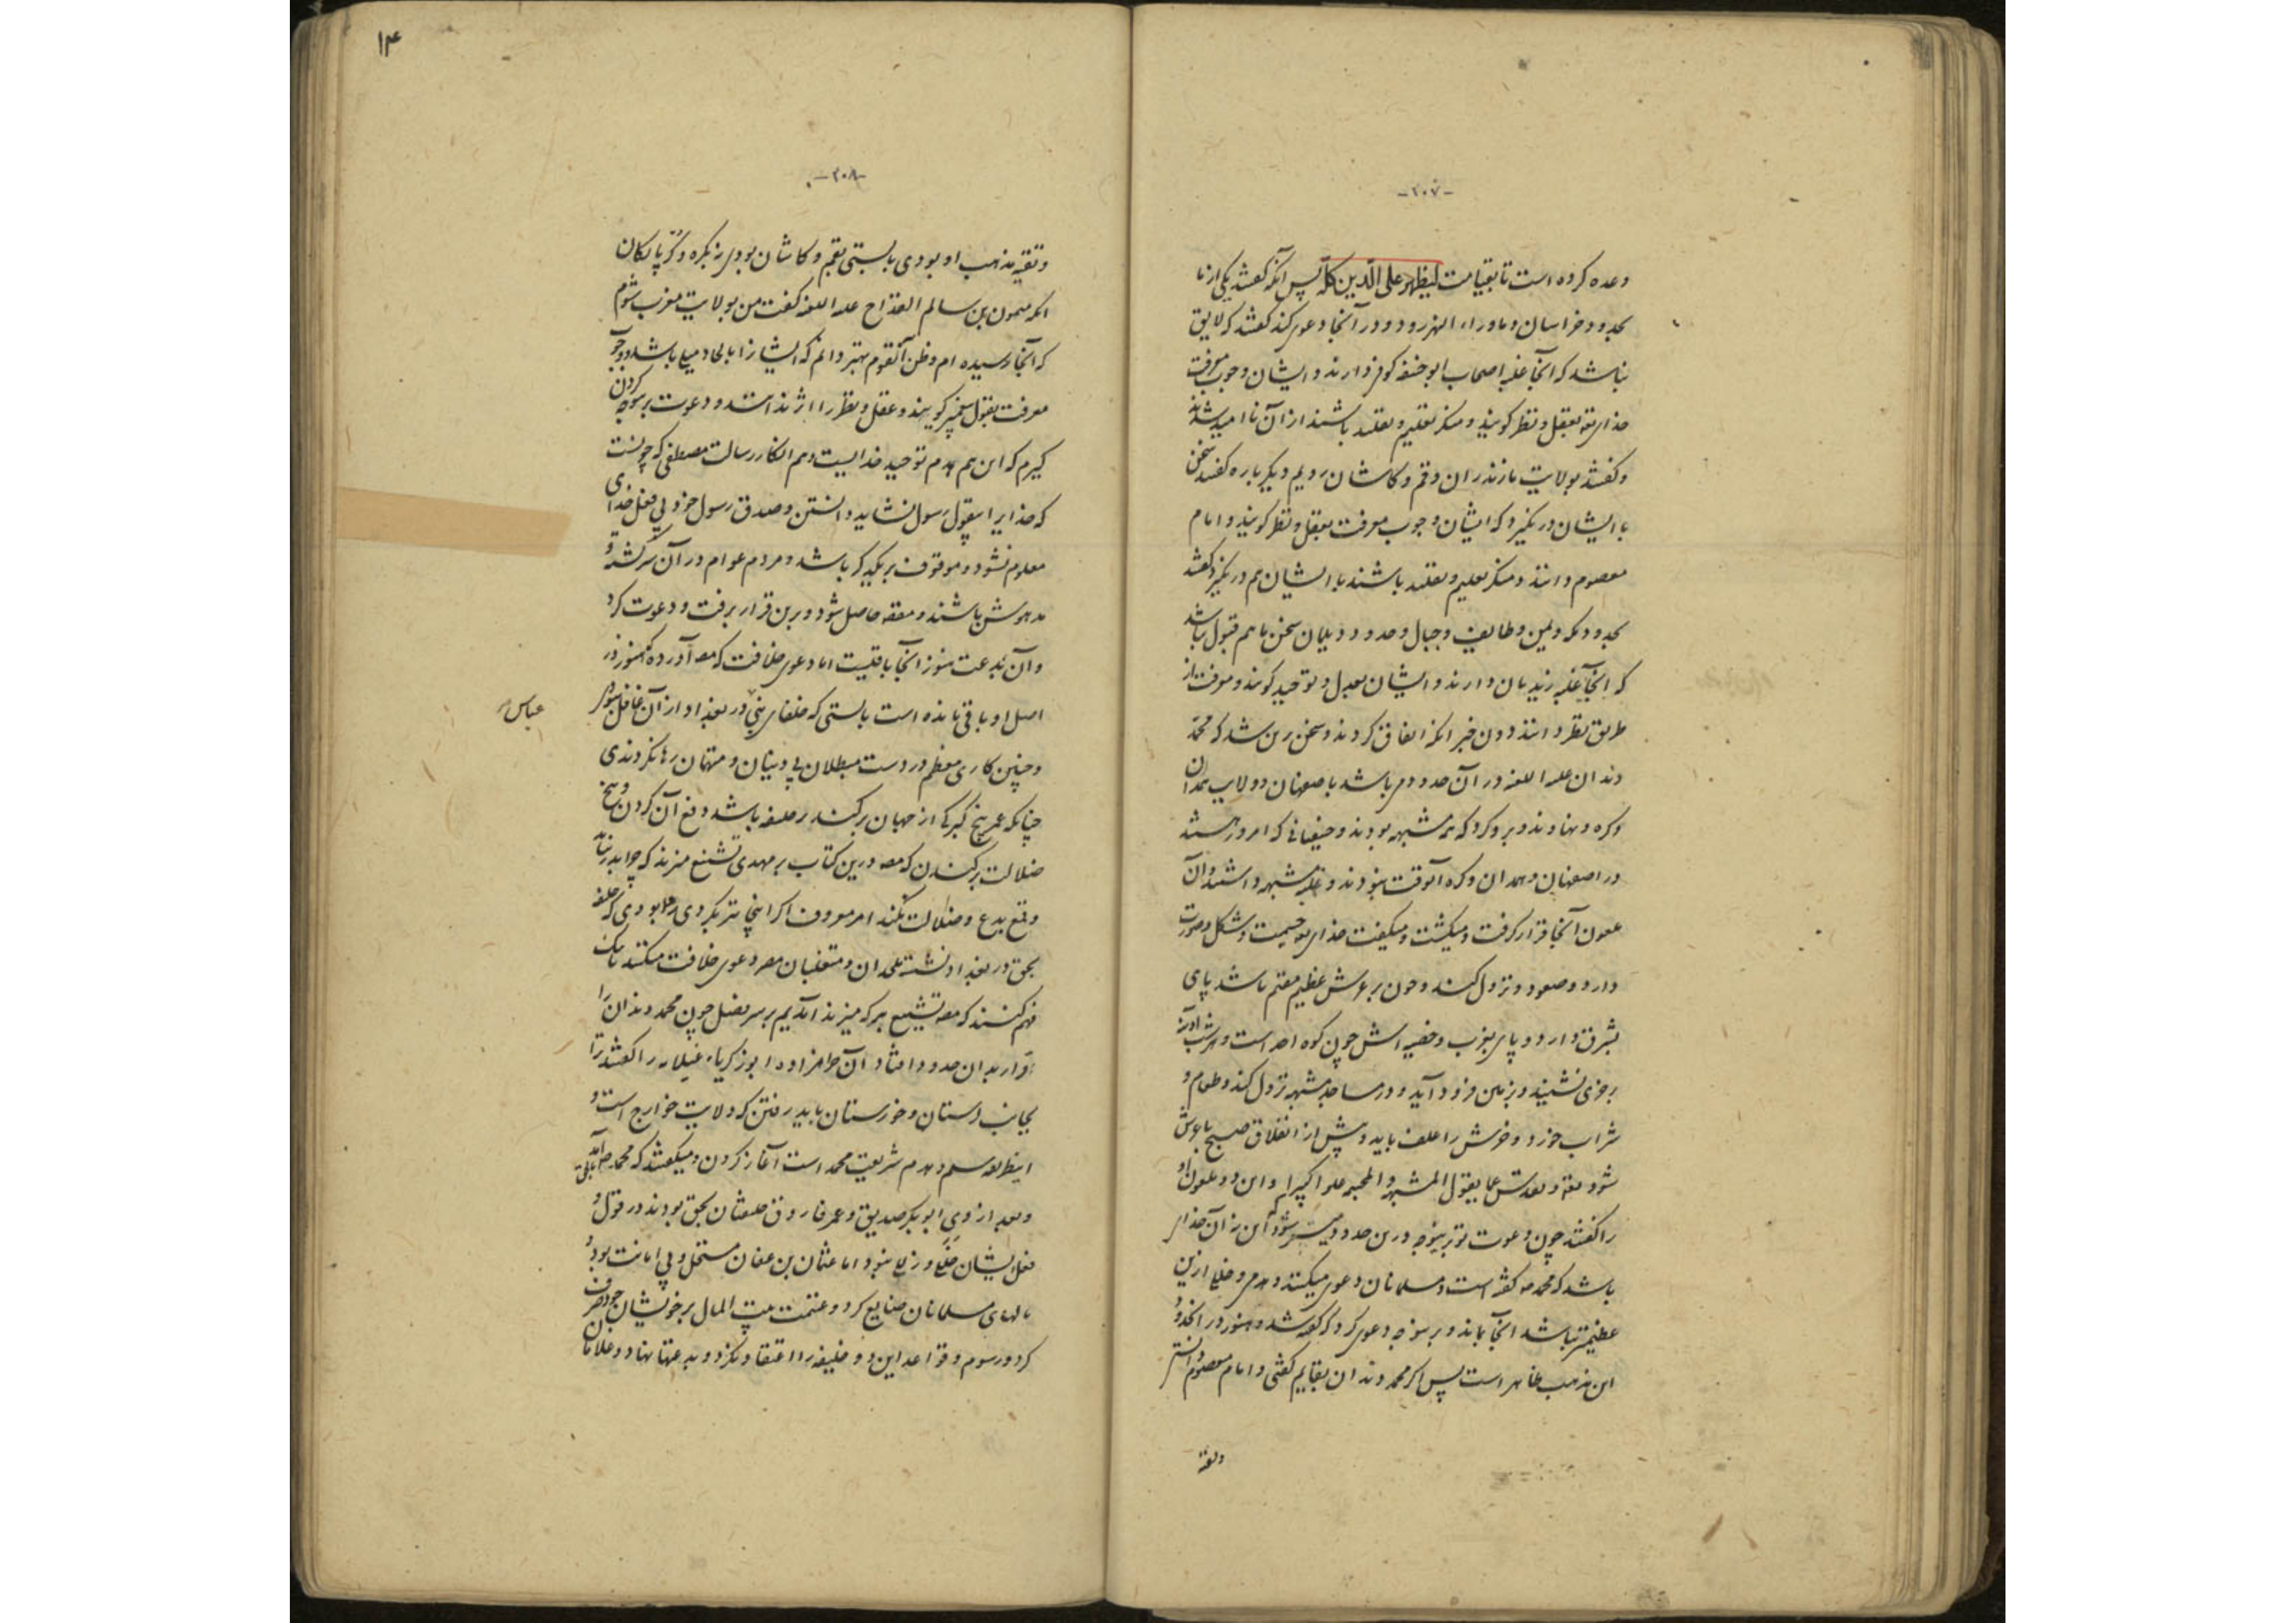 -۲۰۷-
وعده کرده است تا بقیامت لیظهره علی الدین کله پس آنگه گفتند یکی از ما
بحدود خراسان و ماوراء النهر رود و در آنجا دعوی کند گفتند که لایق
نباشد که آنجا غلبه اصحاب ابو حنیفه کوفی دارند و ایشان وجوب معرفت
خدای تعه بعقل و نظر گویند و منکر تعلیم و تقلید باشند از آن ناامید شدند
و گفتند بولایت مازندران و قم و کاشان رویم دیگر باره گفتند سخن
با ایشان درنگیرد که ایشان وجوب معرفت بعقل و نظر گویند و امام
معصوم دانند و منکر تعلیم و تقلید باشند با ایشان هم درنگیرد گفتند
بحدود مکه و یمن و طایف و جبال و حدود دیلمان سخن ما هم قبول نباشد
که آنجا غلبه زیدیان دارند و ایشان بعدل و توحید گویند و معرفت از
طریق نظر دانند دون خبر آنگه اتفاق کردند و سخن برین شد که محمد
دندان علیه اللعنه در آن حدود می باشد باصفهان و ولایت همدان
و کره و نهاوند و بروکرد که همه مشبهه بودند و حنیفیانی که امروز هستند
در اصفهان و همدان و کره آنوقت نبودند و غلبه مشبهه داشتند و آن
ملعون آنجا قرار گرفت و میگشت و میگفت خدای تعه جسمیت و شکل و صورت
دارد و صعود و نزول کند و چون بر عرش عظیم مقیم باشد پای
بشرق دارد و پای بغرب و خفیه اش چون کوه احد است و هر شب آدینه
بر خری نشیند و بزمین فرود آید و در مساجد مشبهه نزول کند و طعام و
شراب خورد و خرش را علف باید و پیش از انفلاق صبح با عرش
شود تعه و تقدس عما یقول المشبهه و المجبره علوا کبیرا و این دو ملعون او
را گفتند چون دعوت تو برینوجه درین حدود میسر شود که این نه آن خدای
باشد که محمد ص گفته است و مسلمانان دعوی میکنند و هدمی و خللی ازین
عظیمتر نباشد آنجا بماند و برینوجه دعوی کرد که گفته شد و هنوز در آنحدود
این مذهب ظاهر است پس اگر محمد دندان بقایم گفتی و امام معصوم دانستی
و تقیه
۱۴
-۲۰۸-
و تقیه مذهب او بودی بایستی بقم و کاشان بودی نه بکره و گرپایگان
آنگه میمون بن سالم القداح علیه اللعنه گفت من بولایت مغرب شوم
که آنجا رسیده ام و ظن آنقوم بهتر دانم که ایشانرا بالحاد میلی باشد و وجوب
معرفت بقول پیغمبر گویند و عقل و نظر را اثر نداند و دعوت برینوجه کردن
گیرم که این هم هدم توحید خداییست و هم انکار رسالت مصطفی که چونست
که خدایرا بقول رسول نشاید دانستن و صدق رسول خود بی فعل خدای
معلوم نشود و موقوف بر یکدیگر باشد و مردم عوام در آن سرگشته و
مدهوش باشند و مقصود حاصل شود و برین قرار برفت و دعوت کرد
و آن بدعت هنوز آنجا باقیست اما دعوی خلافت که مصـ آورده که هنوز در
اصل او باقی مانده است بایستی که خلفای بنی در بغداد از آن غافل نبودندی
عباس
و چنین کاری معظم در دست مبطلان بی دینان و متهمان رها نکردندی
چنانکه عمر بیخ گبرکی از جهان برکند بر خلیفه باشد دفع آن کردن و بیخ
ضلالت برکندن که مصـ درین کتاب بر مهدی تشنیع میزند که چرا بدر نیاید
و قمع بدع و ضلالت نکند امر معروف اگر اینجا نیز بکردی روا بودی که خلیفه
بحق در بغداد نشسته ملحدان و متغلبان مصر دعوی خلافت میکنند تا یک
فهم کنند که مصـ تشنیع بر که میزند آمدیم بر سر فصل چون محمد دندان را
قرار بدان حدود افتاد آن حرامزاده ابو زکریاء غیلانه را گفتند ترا
بجانب دستان و خوزستان باید رفتن که ولایت خوارج است و
اینطریقه رسم و هدم شریعت محمد است آغاز کردن و میگفتند که محمد ص آمد بحق
و بعد از وی ابو بکر صدیق و عمر فاروق خلیفتان بحق بودند در قول و
فعل ایشان خللی و زللی نبود اما عثمان بن عفان مستحل و بی امانت بود و
مالهای مسلمانان ضایع کرد و غنیمت بیت المال بر خویشان خود صرف
کرد و رسوم و قواعد این دو خلیفه را اعتقاد نکرد و بدعتها نهاد و غلامان